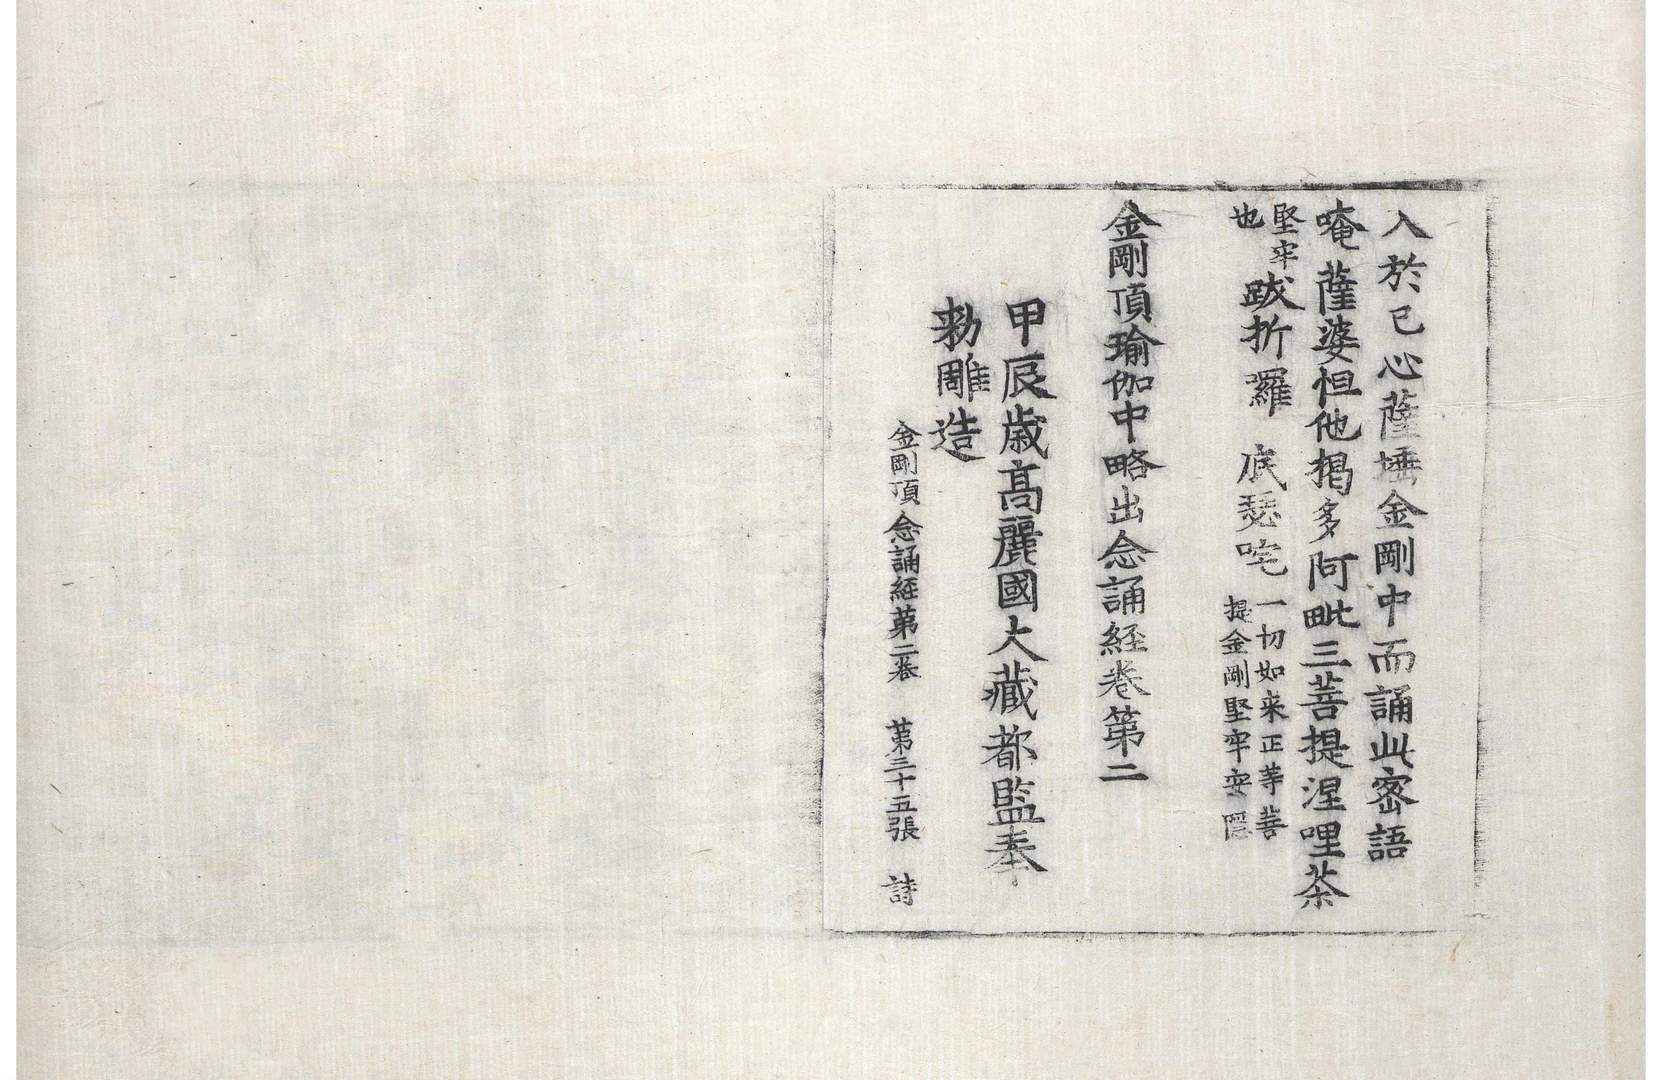 入於已心薩埵金剛中而誦此密語
唵薩婆怛他揭多阿毗三菩提涅哩茶
堅牢也跋折囉底瑟咤一切如来正等菩提金剛堅牢安隱
金剛頂瑜伽中略出念誦経卷第二
甲辰歳高麗國大藏都監奉
勑雕造
金剛頂念誦経第二卷 第三十五張 詩